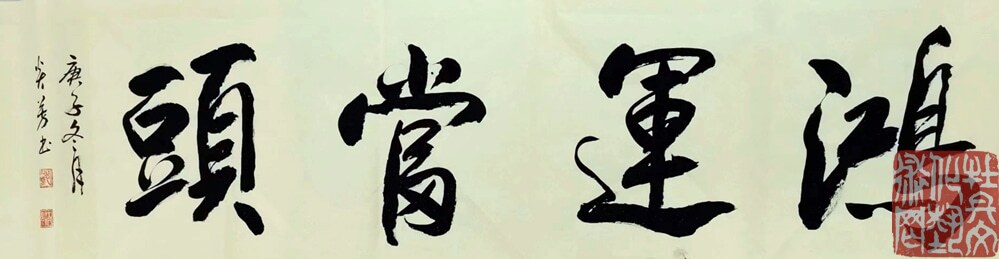 鴻運當頭
庚子冬月
炎芳书